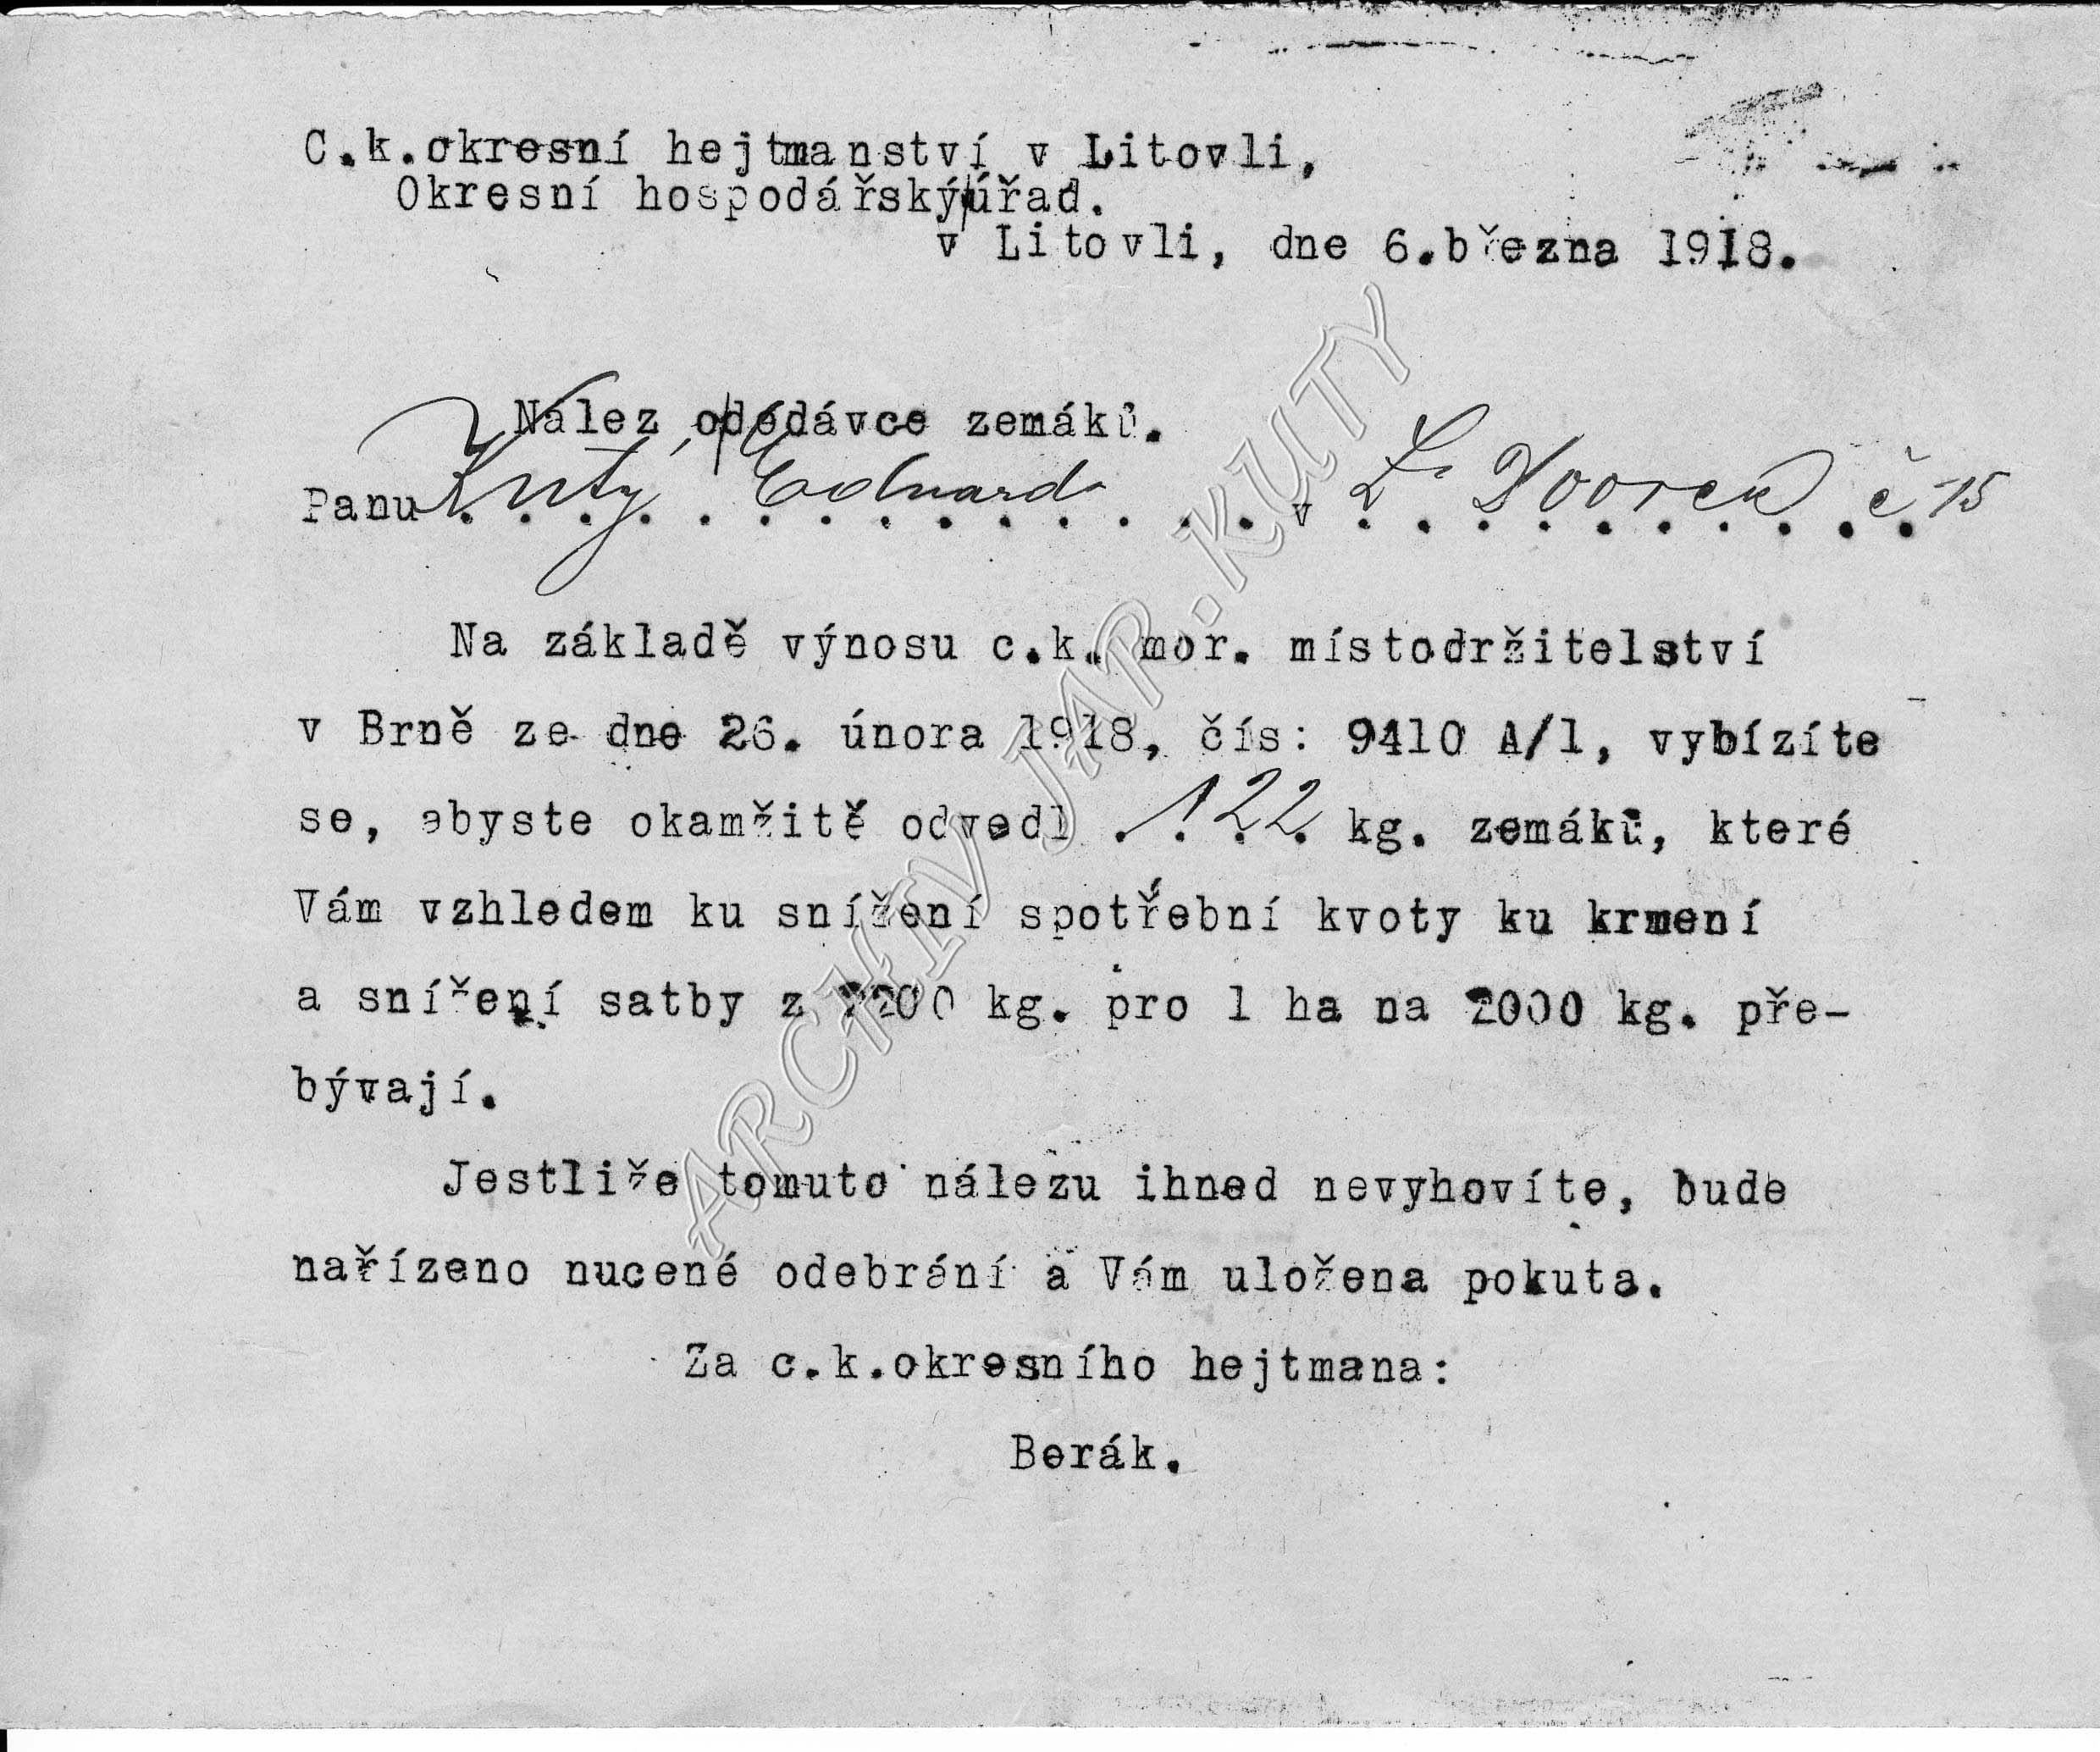 C.k.okresní hejtmanství v Litovli,
Okresní hospodářský úřad.
v Litovli, dne 6.března 1918.
Nález o dodávce zemáků.
Panu Kutý Eduard v L. Dvorek č 15
Na základě výnosu c.k. mor. místodržitelství
v Brně ze dne 26. února 1918, čís: 9410 A/1, vybízíte
se, abyste okamžitě odvedl 122 kg. zemáků, které
Vám vzhledem ku snížení spotřební kvoty ku krmení
a snížení satby z 2200 kg. pro 1 ha na 2000 kg. pře-
bývají.
Jestliže tomuto nálezu ihned nevyhovíte, bude
nařízeno nucené odebrání a Vám uložena pokuta.
Za c.k.okresního hejtmana:
Berák.
ARCHIV JAR.KUTÝ